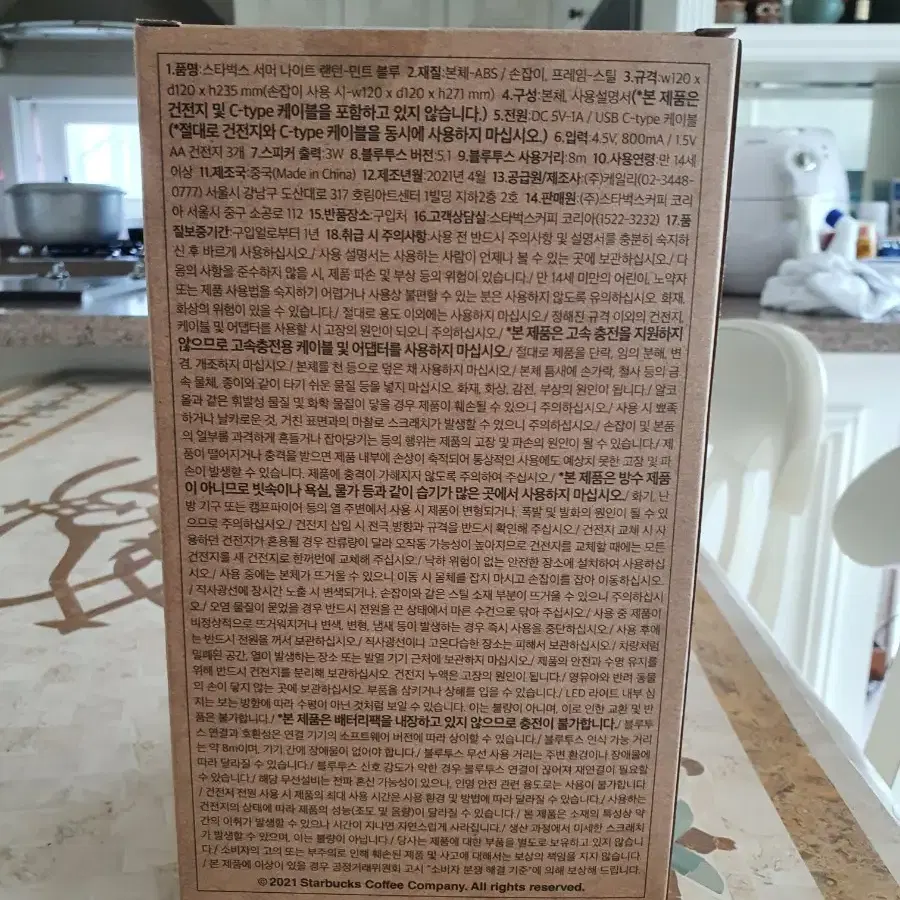 1.품명:스타벅스 서머 나이트 랜턴-민트 블루 2.재질:본체-ABS / 손잡이, 프레임-스틸 3.규격:w120 x
d120 x h235 mm(손잡이 사용 시-w120 x d120 x h271 mm) 4.구성:본체, 사용설명서(*본 제품은
건전지 및 C-type 케이블을 포함하고 있지 않습니다.) 5.전원:DC 5V-1A / USB C-type 케이블
(*절대로 건전지와 C-type 케이블을 동시에 사용하지 마십시오.) 6.입력:4.5V, 800mA / 1.5V
AA 건전지 3개 7.스피커 출력:3W 8.블루투스 버전:5.1 9.블루투스 사용거리:8m 10.사용연령:만 14세
이상 11.제조국:중국(Made in China) 12.제조년월:2021년 4월 13.공급원/제조사:(주)케일리(02-3448-
0777) 서울시 강남구 도산대로 317 호림아트센터 1빌딩 지하2층 2호 14.판매원:(주)스타벅스커피 코리
아 서울시 중구 소공로 112 15.반품장소:구입처 16.고객상담실:스타벅스커피 코리아(1522-3232) 17.품
질보증기간:구입일로부터 1년 18.취급 시 주의사항:사용 전 반드시 주의사항 및 설명서를 충분히 숙지하
신 후 바르게 사용하십시오./ 사용 설명서는 사용하는 사람이 언제나 볼 수 있는 곳에 보관하십시오./ 다
음의 사항을 준수하지 않을 시, 제품 파손 및 부상 등의 위험이 있습니다./ 만 14세 미만의 어린이, 노약자
또는 제품 사용법을 숙지하기 어렵거나 사용상 불편할 수 있는 분은 사용하지 않도록 유의하십시오. 화재,
화상의 위험이 있을 수 있습니다./ 절대로 용도 이외에는 사용하지 마십시오./ 정해진 규격 이외의 건전지,
케이블 및 어댑터를 사용할 시 고장의 원인이 되오니 주의하십시오./ *본 제품은 고속 충전을 지원하지
않으므로 고속충전용 케이블 및 어댑터를 사용하지 마십시오./ 절대로 제품을 단락, 임의 분해, 변
경, 개조하지 마십시오./ 본체를 천 등으로 덮은 채 사용하지 마십시오./ 본체 틈새에 손가락, 철사 등의 금
속 물체, 종이와 같이 타기 쉬운 물질 등을 넣지 마십시오. 화재, 화상, 감전, 부상의 원인이 됩니다./ 알코
올과 같은 휘발성 물질 및 화학 물질이 닿을 경우 제품이 훼손될 수 있으니 주의하십시오./ 사용 시 뾰족
하거나 날카로운 것, 거친 표면과의 마찰로 스크래치가 발생할 수 있으니 주의하십시오./ 손잡이 및 본품
의 일부를 과격하게 흔들거나 잡아당기는 등의 행위는 제품의 고장 및 파손의 원인이 될 수 있습니다./ 제
품이 떨어지거나 충격을 받으면 제품 내부에 손상이 축적되어 통상적인 사용에도 예상치 못한 고장 및 파
손이 발생할 수 있습니다. 제품에 충격이 가해지지 않도록 주의하여 주십시오./ *본 제품은 방수 제품
이 아니므로 빗속이나 욕실, 물가 등과 같이 습기가 많은 곳에서 사용하지 마십시오./ 화기, 난
방 기구 또는 캠프파이어 등의 열 주변에서 사용 시 제품이 변형되거나, 폭발 및 발화의 원인이 될 수 있
으므로 주의하십시오./ 건전지 삽입 시 전극 방향과 규격을 반드시 확인해 주십시오./ 건전지 교체 시 사
용하던 건전지가 혼용될 경우 잔류량이 달라 오작동 가능성이 높아지므로 건전지를 교체할 때에는 모든
건전지를 새 건전지로 한꺼번에 교체해 주십시오./ 낙하 위험이 없는 안전한 장소에 설치하여 사용하십
시오./ 사용 중에는 본체가 뜨거울 수 있으니 이동 시 몸체를 잡지 마시고 손잡이를 잡아 이동하십시오.
/ 직사광선에 장시간 노출 시 변색되거나, 손잡이와 같은 스틸 소재 부분이 뜨거울 수 있으니 주의하십시
오./ 오염 물질이 묻었을 경우 반드시 전원을 끈 상태에서 마른 수건으로 닦아 주십시오./ 사용 중 제품이
비정상적으로 뜨거워지거나 변색, 변형, 냄새 등이 발생하는 경우 즉시 사용을 중단하십시오./ 사용 후에
는 반드시 전원을 꺼서 보관하십시오./ 직사광선이나 고온다습한 장소는 피해서 보관하십시오./ 차량처럼
밀폐된 공간, 열이 발생하는 장소 또는 발열 기기 근처에 보관하지 마십시오./ 제품의 안전과 수명 유지를
위해 반드시 건전지를 분리해 보관하십시오. 건전지 누액은 고장의 원인이 됩니다./ 영유아와 반려 동물
의 손이 닿지 않는 곳에 보관하십시오. 부품을 삼키거나 상해를 입을 수 있습니다./ LED 라이트 내부 심
지는 보는 방향에 따라 수평이 아닌 것처럼 보일 수 있습니다. 이는 불량이 아니며, 이로 인한 교환 및 반
품은 불가합니다./ *본 제품은 배터리팩을 내장하고 있지 않으므로 충전이 불가합니다./ 블루투
스 연결과 호환성은 연결 기기의 소프트웨어 버전에 따라 상이할 수 있습니다./ 블루투스 인식 가능 거리
는 약 8m이며, 기기 간에 장애물이 없어야 합니다./ 블루투스 무선 사용 거리는 주변 환경이나 장애물에
따라 달라질 수 있습니다./ 블루투스 신호 강도가 약한 경우 블루투스 연결이 끊어져 재연결이 필요할
수 있습니다./ 해당 무선설비는 전파 혼신 가능성이 있으니, 인명 안전 관련 용도로는 사용이 불가합니다.
/ 건전지 전원 사용 시 제품의 최대 사용 시간은 사용 환경 및 방법에 따라 달라질 수 있습니다./ 사용하는
건전지의 상태에 따라 제품의 성능(조도 및 음량)이 달라질 수 있습니다./ 본 제품은 소재의 특성상 약
간의 이취가 발생할 수 있으나 시간이 지나면 자연스럽게 사라집니다./ 생산 과정에서 미세한 스크래치
가 발생할 수 있으며, 이는 불량이 아닙니다./ 당사는 제품에 대한 부품을 별도로 보유하고 있지 않습니다.
/ 소비자의 고의 또는 부주의로 인해 훼손된 제품 및 사고에 대해서는 보상의 책임을 지지 않습니다.
/ 본 제품에 이상이 있을 경우 공정거래위원회 고시 "소비자 분쟁 해결 기준"에 의해 보상해 드립니다.
©2021 Starbucks Coffee Company. All rights reserved.